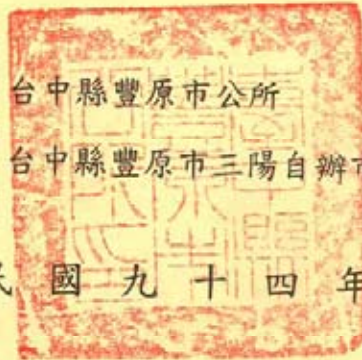 台中縣豐原市公所
台中縣豐原市三陽自辦市
民國九十四年